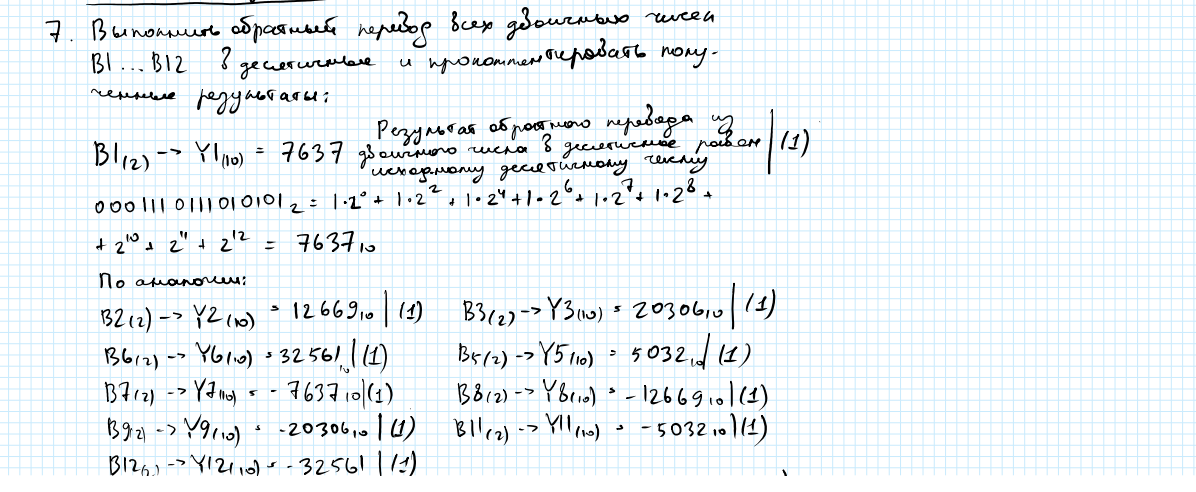 7. Выполнить обратный перевод всех двоичных чисел
B1...B12 в десятичные и прокомментировать полу-
ченные результаты:
B1(2) -> Y1(10) = 7637 Результат обратного перевода из двоичного числа в десятичное равен исходному десятичному числу | (1)
0001110111010101₂ = 1·2⁰ + 1·2² + 1·2⁴ + 1·2⁶ + 1·2⁷ + 1·2⁸ +
+ 2¹⁰ + 2¹¹ + 2¹² = 7637₁₀
По аналогии:
B2(2) -> Y2(10) = 12669₁₀ | (1) B3(2) -> Y3(10) = 20306₁₀ | (1)
B6(2) -> Y6(10) = 32561₁₀ | (1) B5(2) -> Y5(10) = 5032₁₀ | (1)
B7(2) -> Y7(10) = -7637₁₀ | (1) B8(2) -> Y8(10) = -12669₁₀ | (1)
B9(2) -> Y9(10) = -20306₁₀ | (1) B11(2) -> Y11(10) = -5032₁₀ | (1)
B12(2) -> Y12(10) = -32561 | (1)